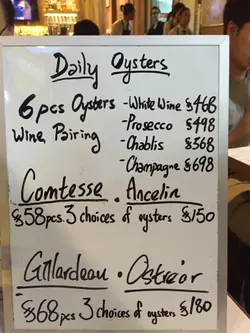 Daily Oysters
6pcs Oysters
Wine Pairing
-White Wine $468
-Prosecco $498
-Chablis $568
-Champagne $698
Comtesse · Ancelin
$58pcs. 3 choices of oysters $150
Gillardeau · Ostréor
$68pcs 3 choices of oysters $180